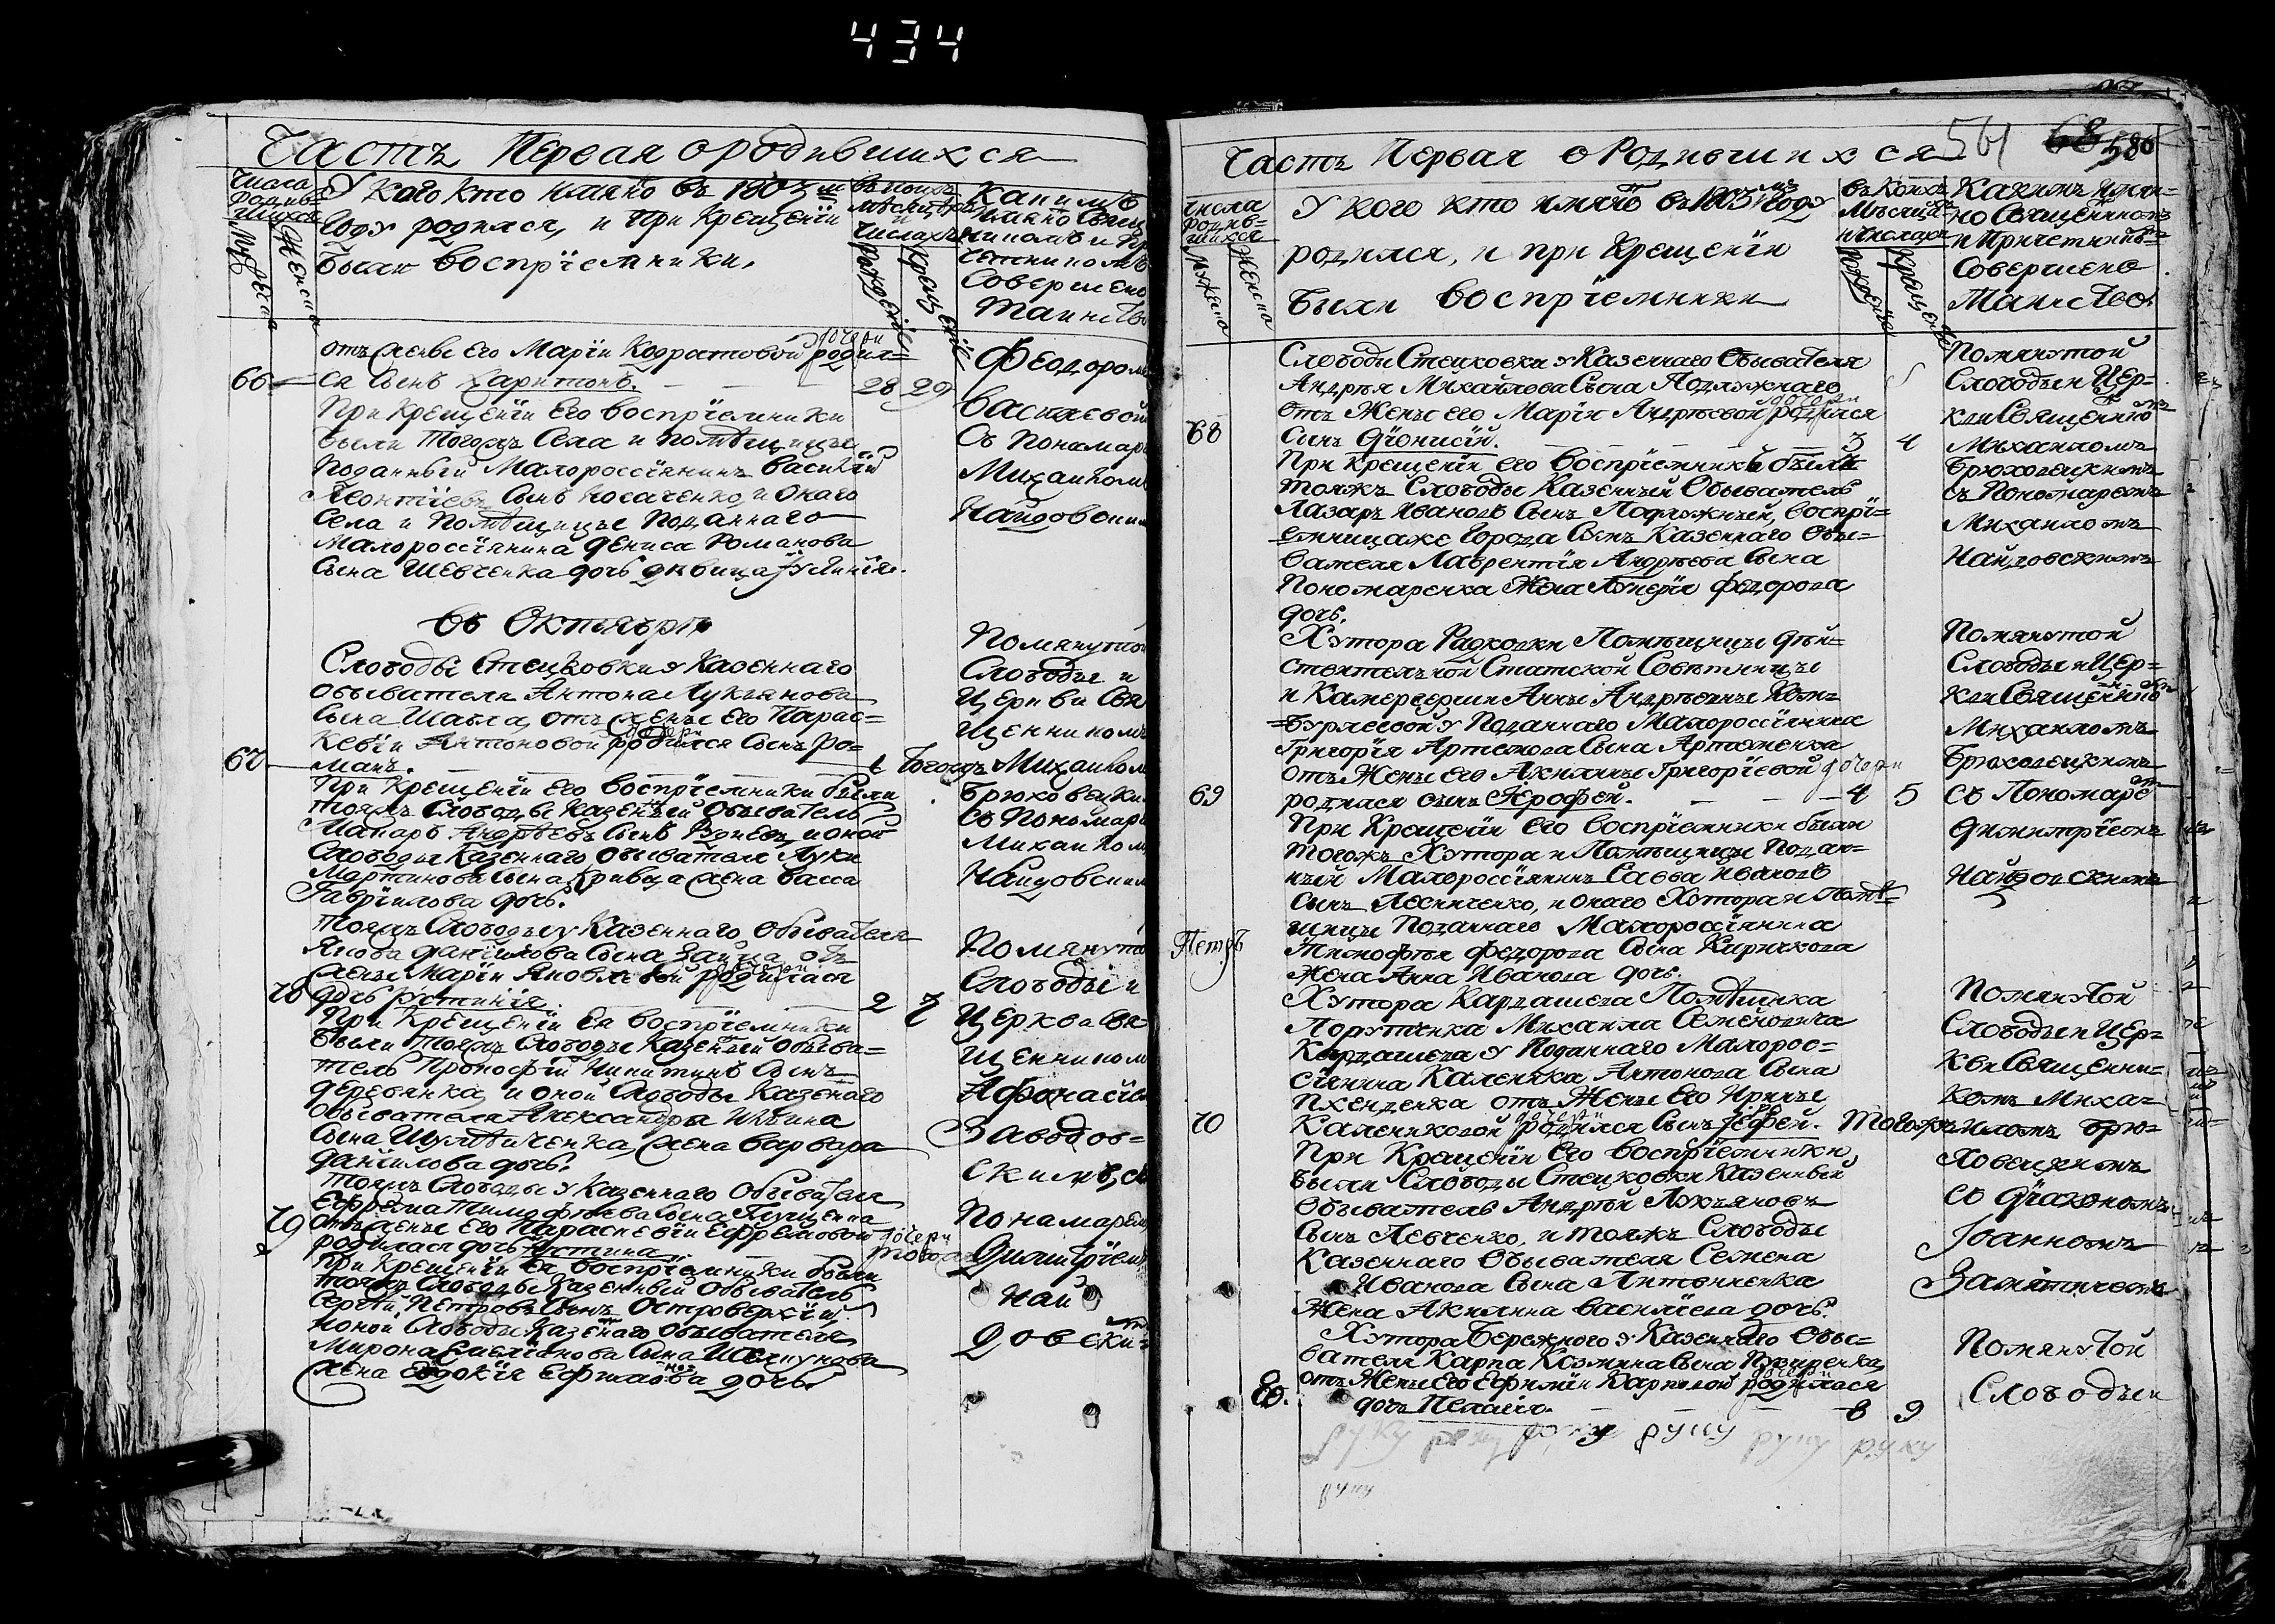 434
Часть Первая о родившихся
Числа
родив-
шихся
Мужеска
Женска
У кого кто имяно въ 1807м
Году родился, и при Крещенїи
были воспрїемники.
въ коихъ
месяцахъ
и
числахъ
рожденїе
Крещенїе
Какимъ
имяно Свящ
Совершено
Таинство
отъ жены его Марїи Кодратовой дочери родил=
66 ся Сынъ Харитонъ. 28 29
При Крещенїи Его воспрїемники
были Тогожъ Села и помѣщицы
Поданный Малороссїянинъ Василїй
Леонтїевъ Сынъ Косаченко, и Онаго
Села и Помѣщицы Поданнаго
Малороссїянина Дениса Романова
Сына Шевченка дочь дѣвица Іулинїя.
Феодоромъ
Василевой
Съ Понамар
Михаиломъ
Найдовским
въ Октябрѣ
Слободы Стецковки у Казеннаго
обывателя Антона Лукьянова
Сына Шавла, отъ жены Его Парас=
кевїи Антоновой дочери родился Сынъ Ро=
67 манъ. 1 Тогожъ
При Крещенїи его воспрїемники были
тояжъ Слободы Казенный Обыватель
Макаръ Андрѣевъ Сынъ и оной
Слободы Казеннаго Обывателя Луки
Мартинова Сына Кривца жена Васса
Гаврїилова дочь.
Помянутой
Слободы и
Церкви Свя
щенникомъ
Михаиломъ
Брюховецки
Съ Понамар
Михаиломъ
Найдовским
тояжъ Слободы у Казеннаго Обывателя
Якова Данїилова Сына Зайца отъ
жены Марїи Яковлевой дочери родилася
78 дочь Іустинїя. 2 7
При Крещенїи Ея воспрїемники
были тояжъ Слободы Казенный Обыва=
тель Прокофїй Никитинъ Сынъ
Деревянка, и оной Слободы Казеннаго
Обывателя Александра Ильина
Сына Шулѣиченка жена Варвара
Данїилова дочь.
Помянуто
Слободы и
Церкви Свя
щенником
Афонасїе
Заводов=
скимъ, съ
тояжъ Слободы у Казеннаго Обывателя
Ефрема Тимофѣева Сына Глущенка
79 отъ жены Его Параскевїи Ефремовой дочери
родилася дочь Іустина. тогожъ
При Крещенїи Ея воспрїемники были
тояжъ Слободы Казенный Обыватель
Сергѣй Петровъ Сынъ Островерхїй
и оной Слободы Казеннаго Обывателя
Мирона Емелїанова Сына
жена Евдокїя дочь.
Понамарем
Димитрїем
Най
довски=
561 68 580
Часть Первая о Родившихся
Числа
родив=
шихся
мужеска
женска
У кого кто имяно въ 1807мъ Году
родился, и при Крещенїи
были воспрїемники
въ Коихъ
Мѣсяца
и Числахъ
рожденїе
Крещенїе
Какимъ имян=
но Священникомъ
и Причетникѣ
Совершено
Таинство.
Слободы Стецковки у Казеннаго Обывателя
Андрѣя Михайлова Сына Подлужнаго
отъ Жены его Марїи Андрѣевой дочери родился
68 Сынъ Дїонисїй. 3 4
При крещенїи его воспрїемники были
тояжъ Слободы Казенный Обыватель
Лазарь Ивановъ Сынъ Подлужный, воспрї=
емницаже Города Сумъ Казеннаго Обы=
вателя Лаврентїя Андрѣева Сына
Пономаренка Жена Федорова
дочь.
Помянутой
Слободы и Цер=
кви Священникомъ
Михаиломъ
Брюховецкимъ
съ Пономаремъ
Михаиломъ
Найдовскимъ
Хутора Радковки Помѣщицы Дѣй=
ствительной Статской Совѣтницы
и Камергерши Анны Андрѣевны Ком=
=бурлеевой у Поданнаго Малороссїянина
Григорїя Артемова Сына Артюменка
отъ Жены его Акилины Григорїевой дочери
69 родился сынъ Іерофей. 4 5
При Крещенїи Его воспрїемники были
тогожъ Хутора и Помѣщицы Подан=
ный Малороссїянинъ Савва Ивановъ
Сынъ Лесниченко, и онаго Хутора и Помѣ=
щицы Поданнаго Малороссїянина
Петръ Тимофѣя Федорова Сына Кирилкова
Жена Анна Иванова дочь.
Помянутой
Слободы и Цер=
кви Священникомъ
Михаиломъ
Брюховецкимъ
съ Пономаремъ
Димитрїемъ
Найдовскимъ
Хутора Кардашева Помѣщика
Порутчика Михаила Семеновича
Кардашева у Поданнаго Малорос=
сїянина Каленика Антонова Сына
Пхенденка отъ Жены Его Ирины
70 Калениковой дочери родился Сынъ Іефей. Тогожъ
При Крещенїи Его воспрїемники
были Слободы Стецковки Казенный
Обыватель Андрѣй Лукьяновъ
Сынъ Левченко, и тояжъ Слободы
Казеннаго Обывателя Семена
Иванова Сына Литвиненка
Жена Акилина Василїева дочь.
Помянутой
Слободы и Цер=
кви Священни=
комъ Миха=
иломъ Брю=
ховецкимъ
со Дїакономъ
Іоанномъ
Замятинымъ
Хутора Бережного у Казеннаго Обы=
вателя Карпа Козмина Сына Пузиренка,
отъ Жены Его Ефимїи Карповой дочери родилася
80. дочь Пелагїя. 8 9
Помянутой
Слободы и
руку руку руку руку руку руку
руку